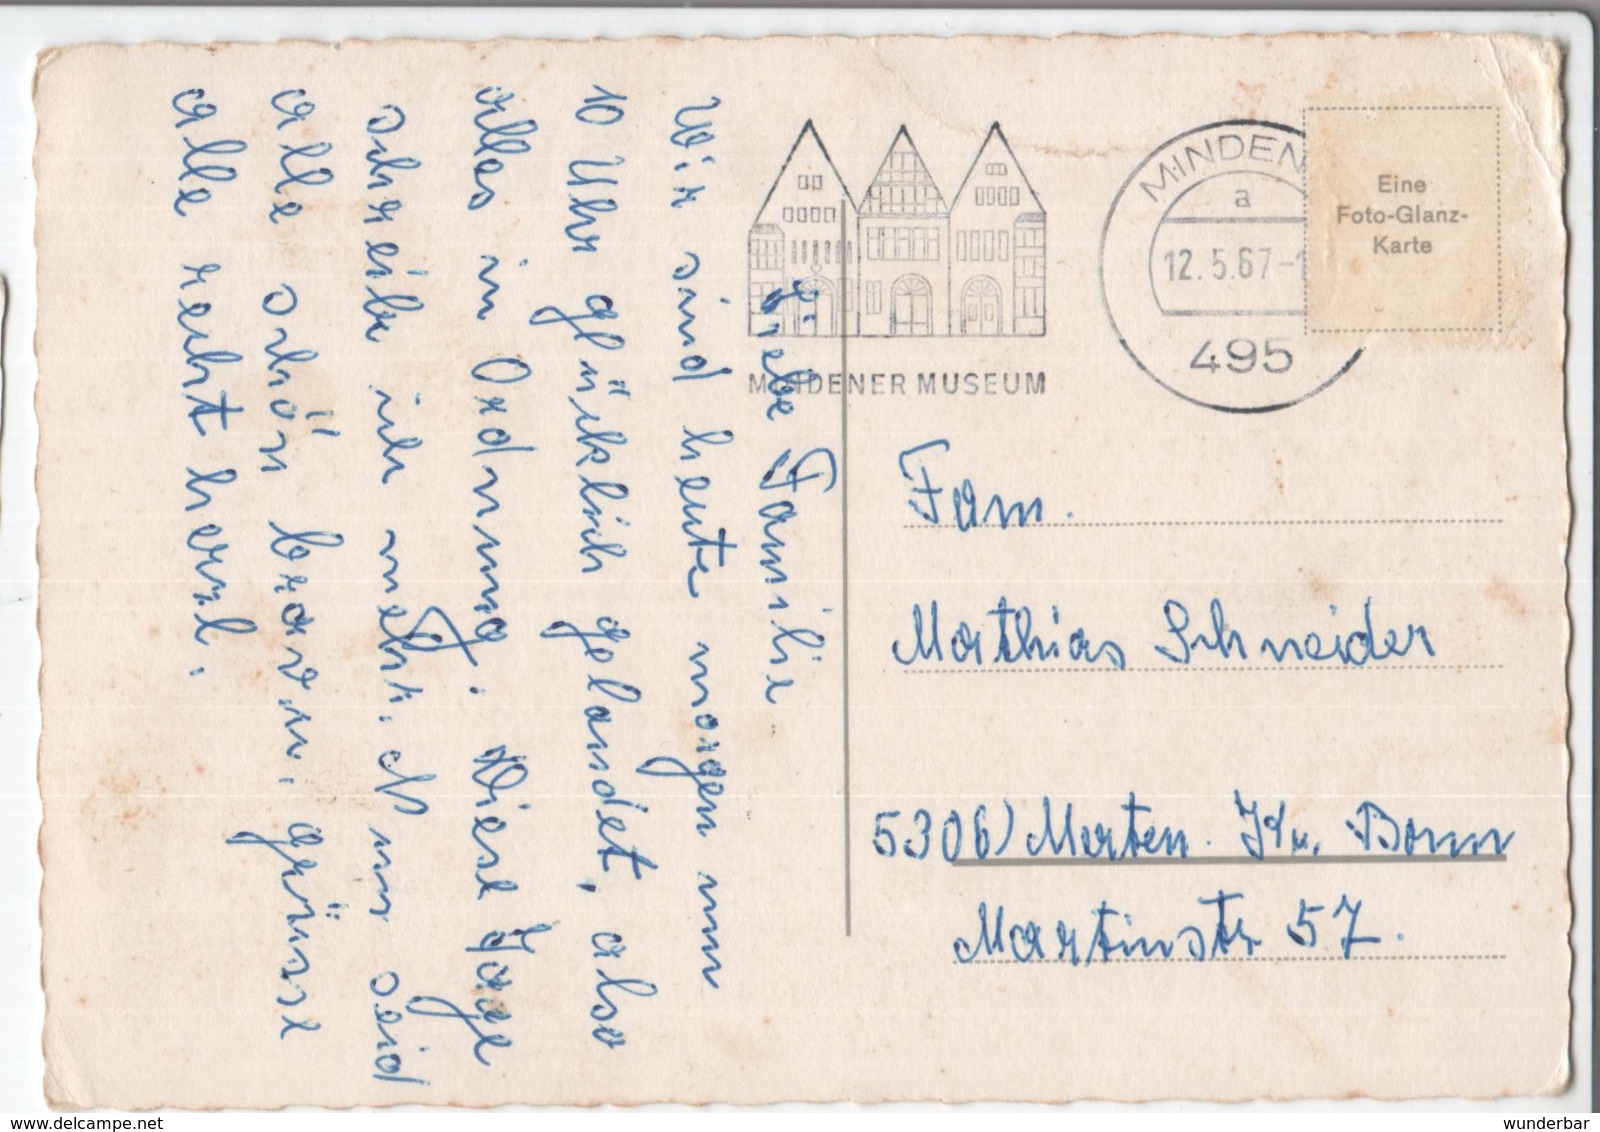 Liebe Familie
Wir sind heute morgen um
10 Uhr glücklich gelandet, also
alles in Ordnung. Diese Tage
schreibe ich mehr. Nun seid
alle schön brav u. grüsse
alle recht herzl.
MINDENER MUSEUM
MINDEN
a
12.5.67-1
495
Eine
Foto-Glanz-
Karte
Fam.
Mathias Schneider
5306) Merten. Bonn
Martinstr 57.
www.delcampe.net
wunderbar